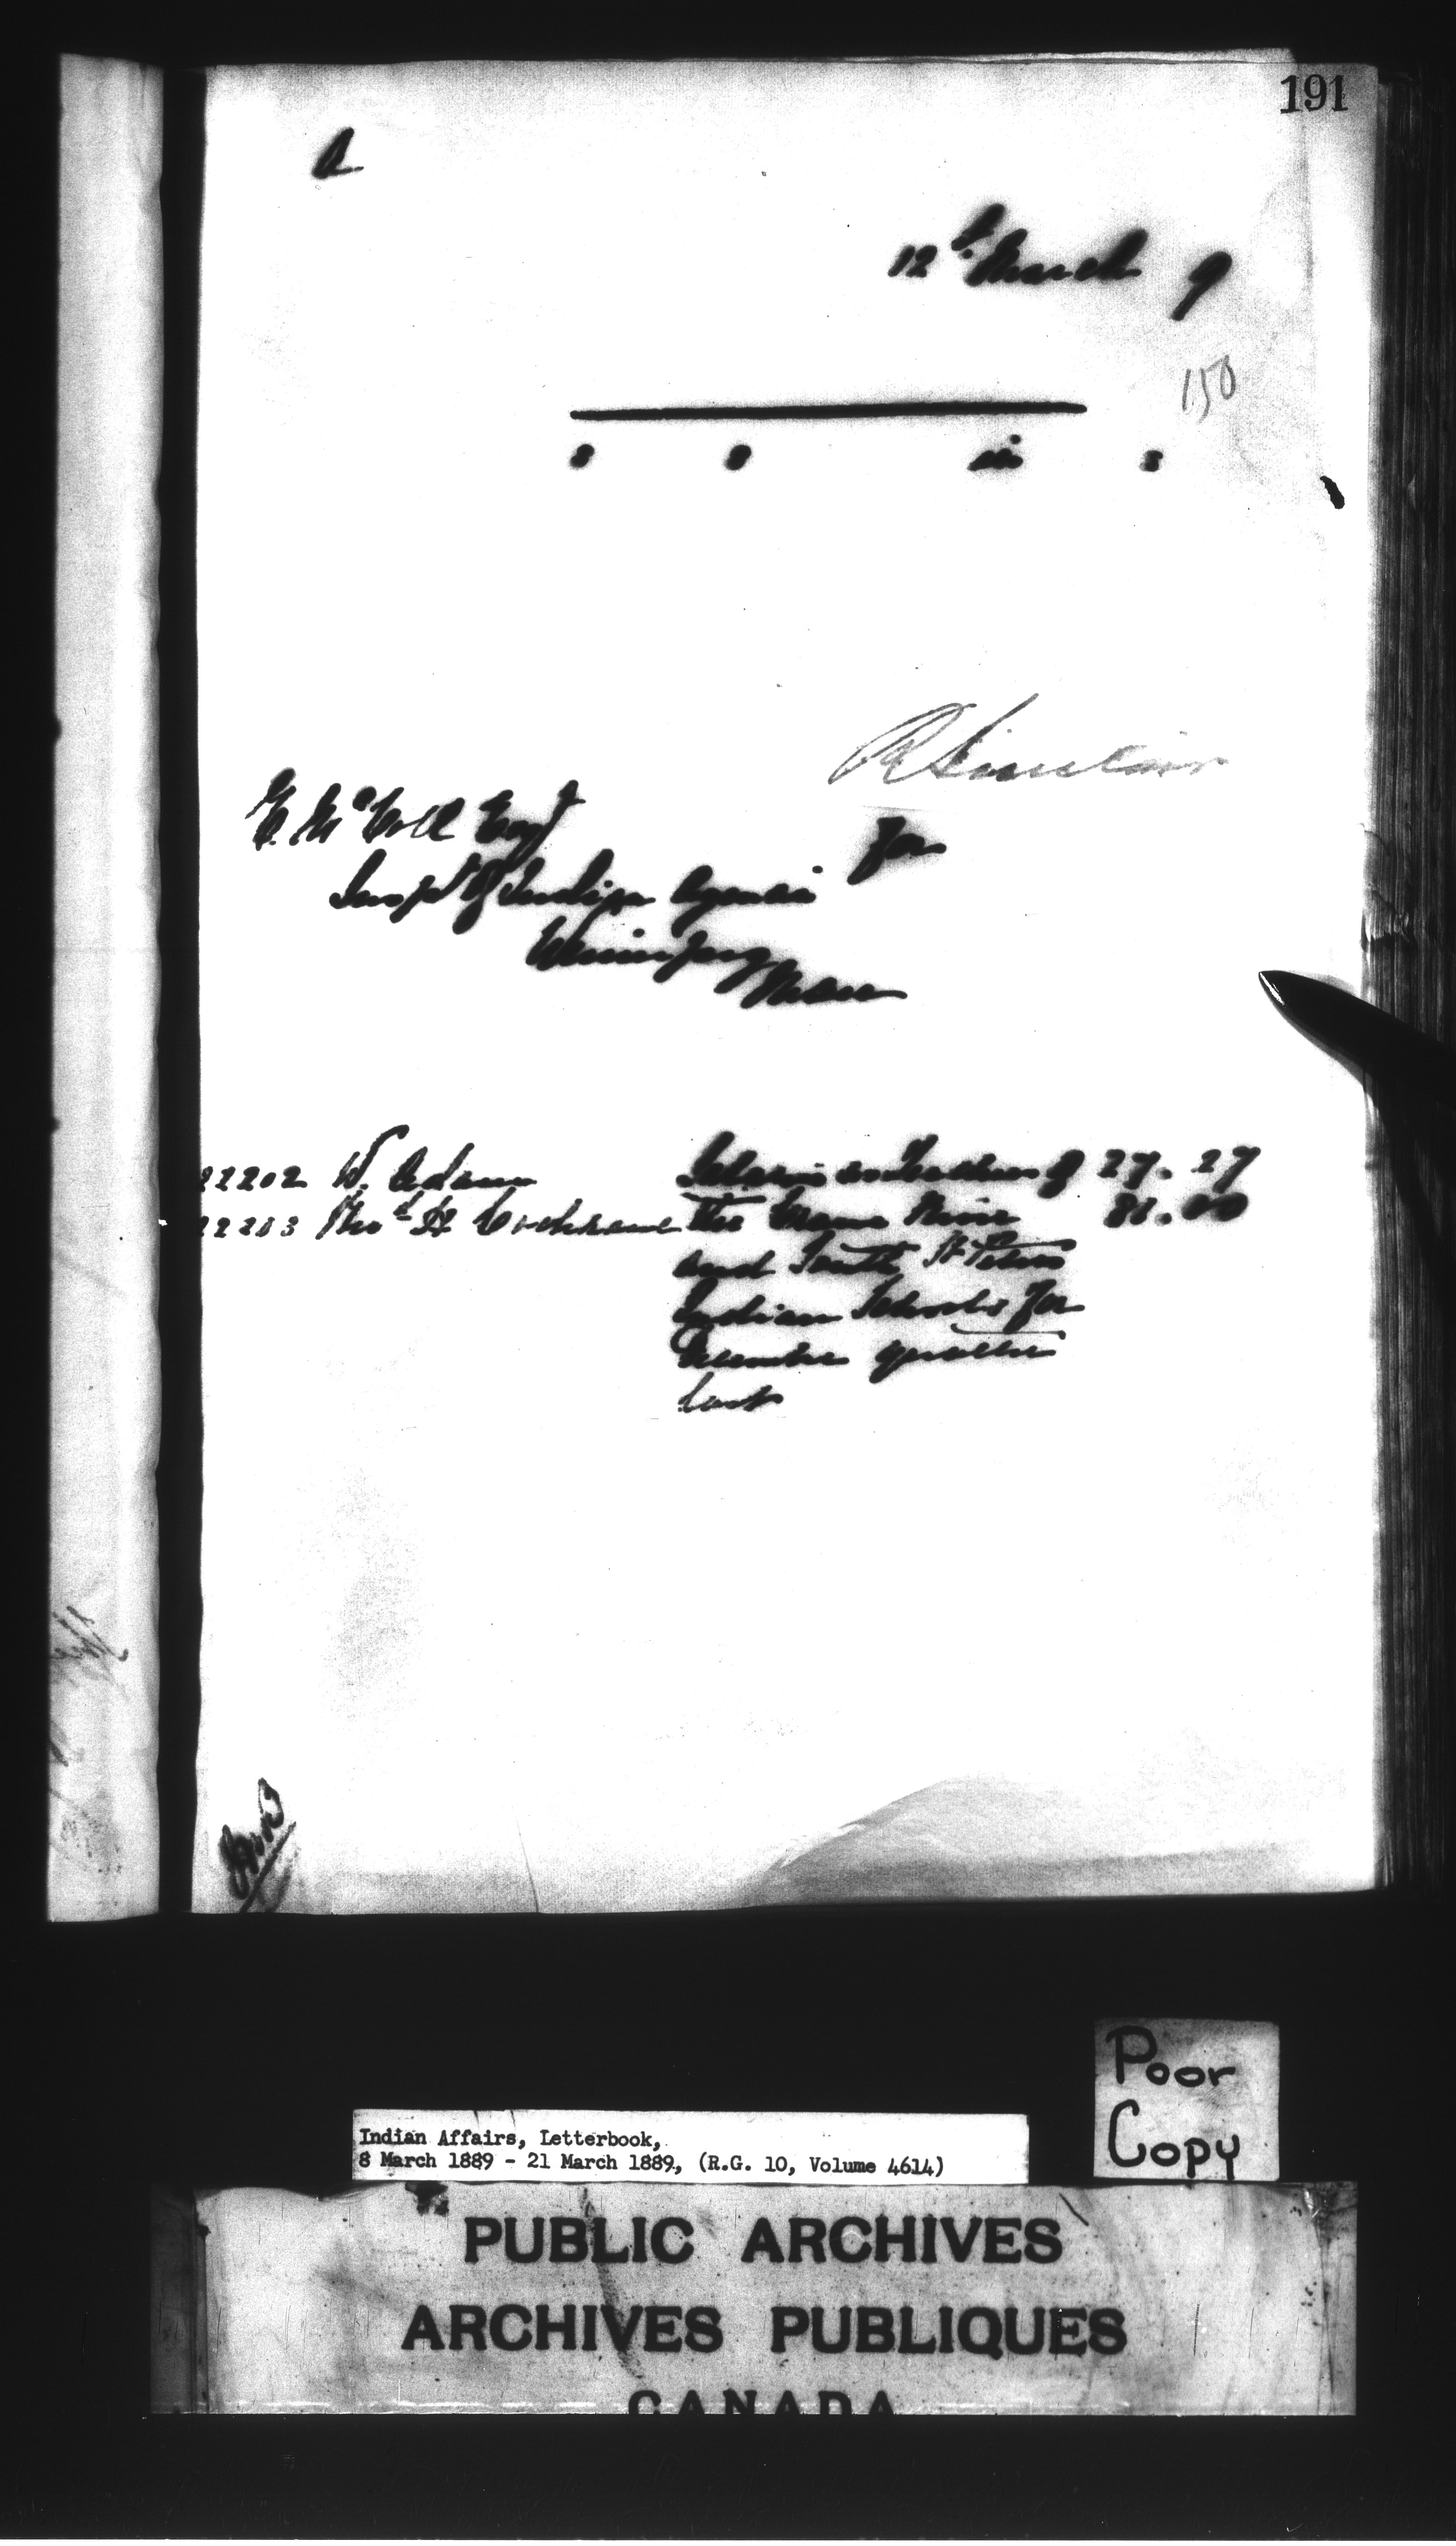 191
A
12th March 9
150
s s in s
R Sinclair
for
E. McColl Esq
Insp't of Indian Agencies
Winnipeg
Man
22202 W. Adam Salaries as Teachers of 27.27
22203 Thos H Cochrane The Crane River 81.00
and South St Peters
Indian Schools for
December quarter
last
Poor
Copy
Indian Affairs, Letterbook,
8 March 1889 - 21 March 1889, (R.G. 10, Volume 4614)
PUBLIC ARCHIVES
ARCHIVES PUBLIQUES
CANADA